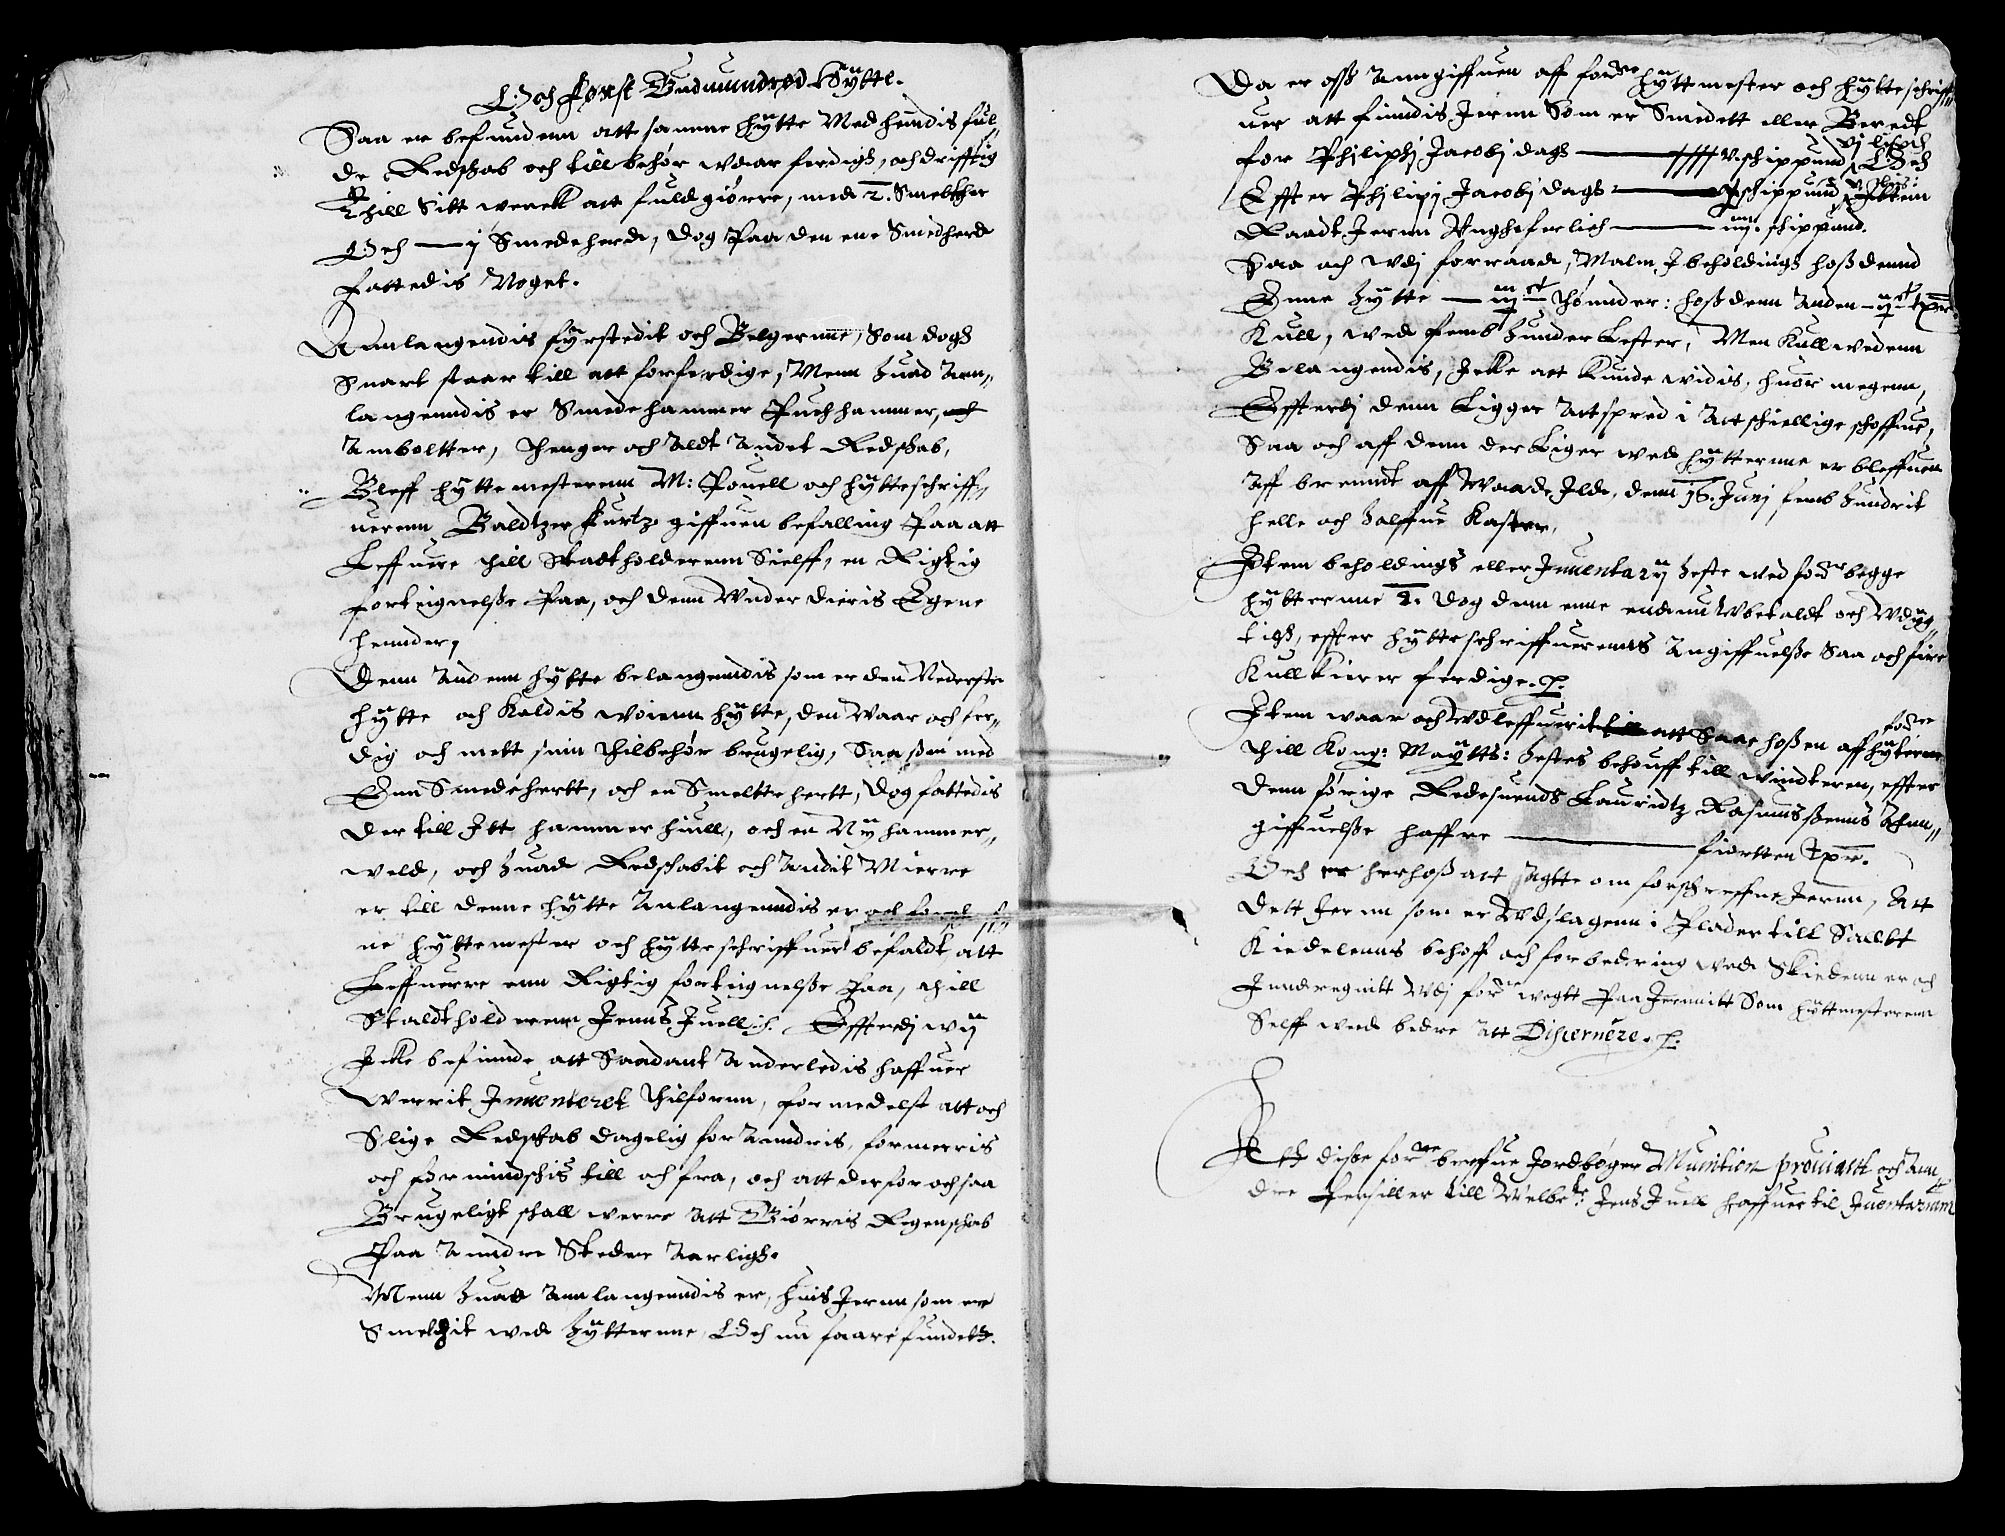 Och først Gudmundrød Hÿtte.
Saa er befundenn att samme hÿtte Med hendis ful-
de Redskab och till behør waar ferdigh, och drifftig
Thill Sitt werck att fuldgiørre, med 2. Smelther
Och — ij Smedeherde, dog Paa den ene Smedherd
fattedis Noget.
Annlangendis fÿrstedit och Belgernne, Som dogh
Snart staar till att forferdige, Menn huad Ann-
langenndis er Smedehammer Puchhammer, och
Amboltter, Thenger och Aldt Andet Redskab,
Bleff hÿttemesterenn M: Pouell och hÿtteschriff-
uerenn Baldtzer Kurtz giffuen befalling Paa att
Leffuere thill Stadtholderenn Sielff, en Rigtig
fortegnelsse Paa, och denn Under dieris Egene
hennder,
Denn Andenn hÿtte belangenndis som er den Nederste
hÿtte och kaldis woienn hÿtte, den waar och fer-
dig och mett sinn Thilbehør brugelig, Saa som med
Enn Smedehertt, och en Smeltte hertt, Dog fattedis
der till Itt hammer huill, och en Nÿ hammer-
weld, och huad Redskabit och Andit Mierre
er till denne hÿtte Anlangenndis er och
ne hÿttemester och hÿtteschriffuer befaldt att
Leffuerre enn Rigtig fortegnelsse Paa, thill
Staldtholderenn Jenns Juell. Effterdj wij
Icke befinnde att Saadant Anderledis haffuer
werrit Inuenteret Thilfornn, formedelst att och
Slige Redskab dagelig forAnndris, formerris
och formindschis till och fra, och att derfor ochsaa
Brugeligt schall werre Att Giørris Regenschab
Paa Anndre Steder Aarligh.
Menn huad Annlangenndis er, huis Jernn som er
Smeltzit wed hÿtternne, Och nu faarefundetz.
Da er oss Anngiffuen aff fordne hÿttmester och hÿtteschriff-
uer att findis Jernn Som er Smedett eller Beredt
for Philiphj Jacobj dagh — schippund vj lispd Och
Effter Philipj Jacobj dagh — schippund Item
Raadt Jernn Unghferlich — iiij. schippund.
Saa och wdj forraad, Malm I beholdingh hoss dennd
Enne hÿtte — iijc Thønnder: hoss denn Anden — ijc tpr
Kull, wed femb hunder Lester, Men Kullwedenn
Belangendis, Icke att kunde widis, huor megenn,
Effterdj denn Ligger Attspred i Attschiellige schoffue,
Saa och aff denn der Liger wed hÿtternne er bleffuen
Aff brenndt aff Waade Ild, denn 16. Junj femb hundrit
helle och halffue Kaster,
Item beholdingh eller Inuentarij heste wed fordne begge
hÿtternne 2. Dog denn enne endnu Ubetaldt och Udÿg-
tigh, effter hÿtteschriffuerenns Angiffuelsse Saa och fire
Kull kierer ferdige.
Item waar och Udleffuerit till att Saae hoss en aff fordne hÿterne
thill Kong: Maÿtts: hestes behouff till windteren, effter
denn førige Redesuends Lauridtz Rasmussenns Ann-
giffuelsse haffre — fiortten tpr.
Och er herhoss att Agtte om forschreffne Jernn, Att
dett Jernn som er Udslagenn i Plader till Salltt
Kiedelenns behoff och forbedering wed Skiedenn er och
Innregnitt Udj fordne wegtt Paa Jernnitt Som hÿttmesterenn
Selff wed bedre Att Discernere.
Att disse fordne breffue Jordbøger Munition prouiantt och Ann-
dre Persiller till Welbte: Jens Juell haffuer til Inuentarium